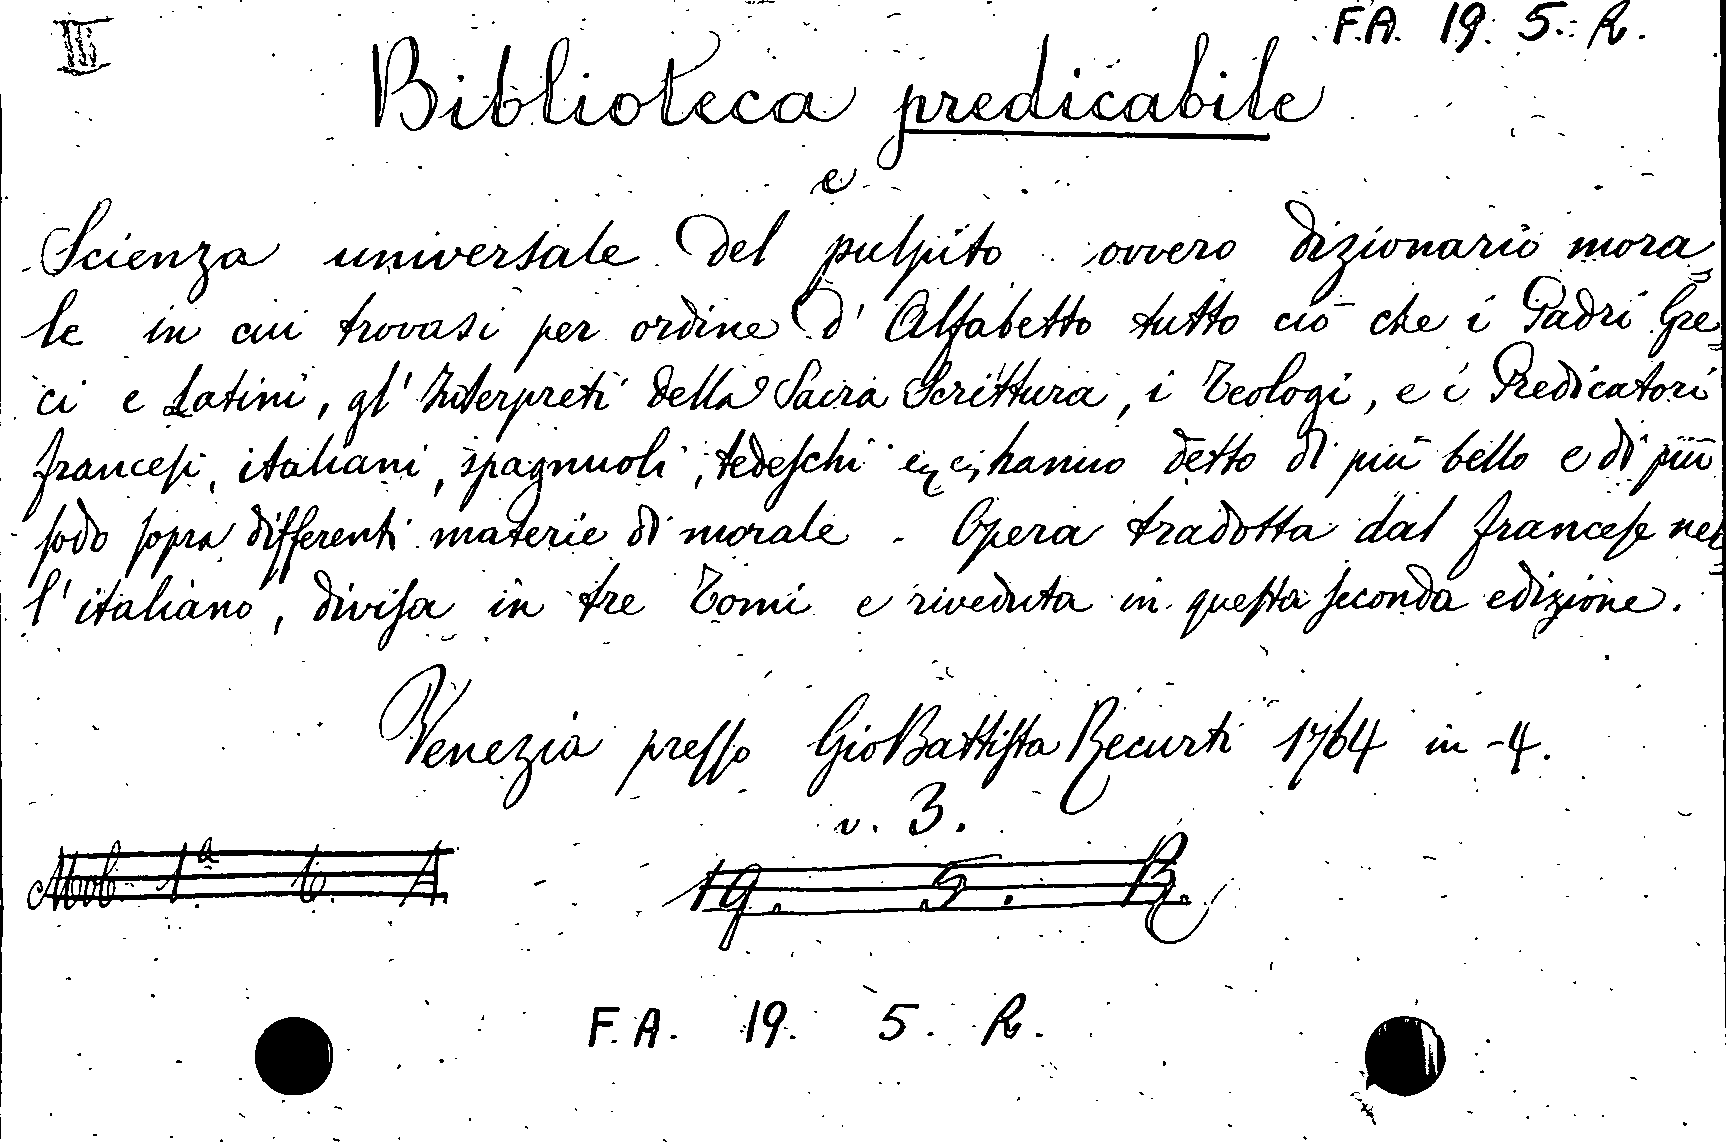 III F.A. 19. 5. R.
Biblioteca predicabile
e
Scienza universale del pulpito ovvero dizionario mora„
le in cui trovasi per ordine d' Alfabetto tutto ciò che i Padri Gre„
ci e Latini, gl' Interpreti della Sacra Scrittura, i Teologi, e i Predicatori
francesi, italiani, spagnuoli, tedeschi hanno detto di più bello e di più
sodo sopra differenti materie di morale. Opera tradotta dal francese nel„
l'italiano, divisa in tre Tomi e riveduta in questa seconda edizione.
Venezia presso GioBattista Recurti 1764 in-4.
v. 3.
Mob. 1ª L. A. 19. 5. R.
F.A. 19. 5. R.